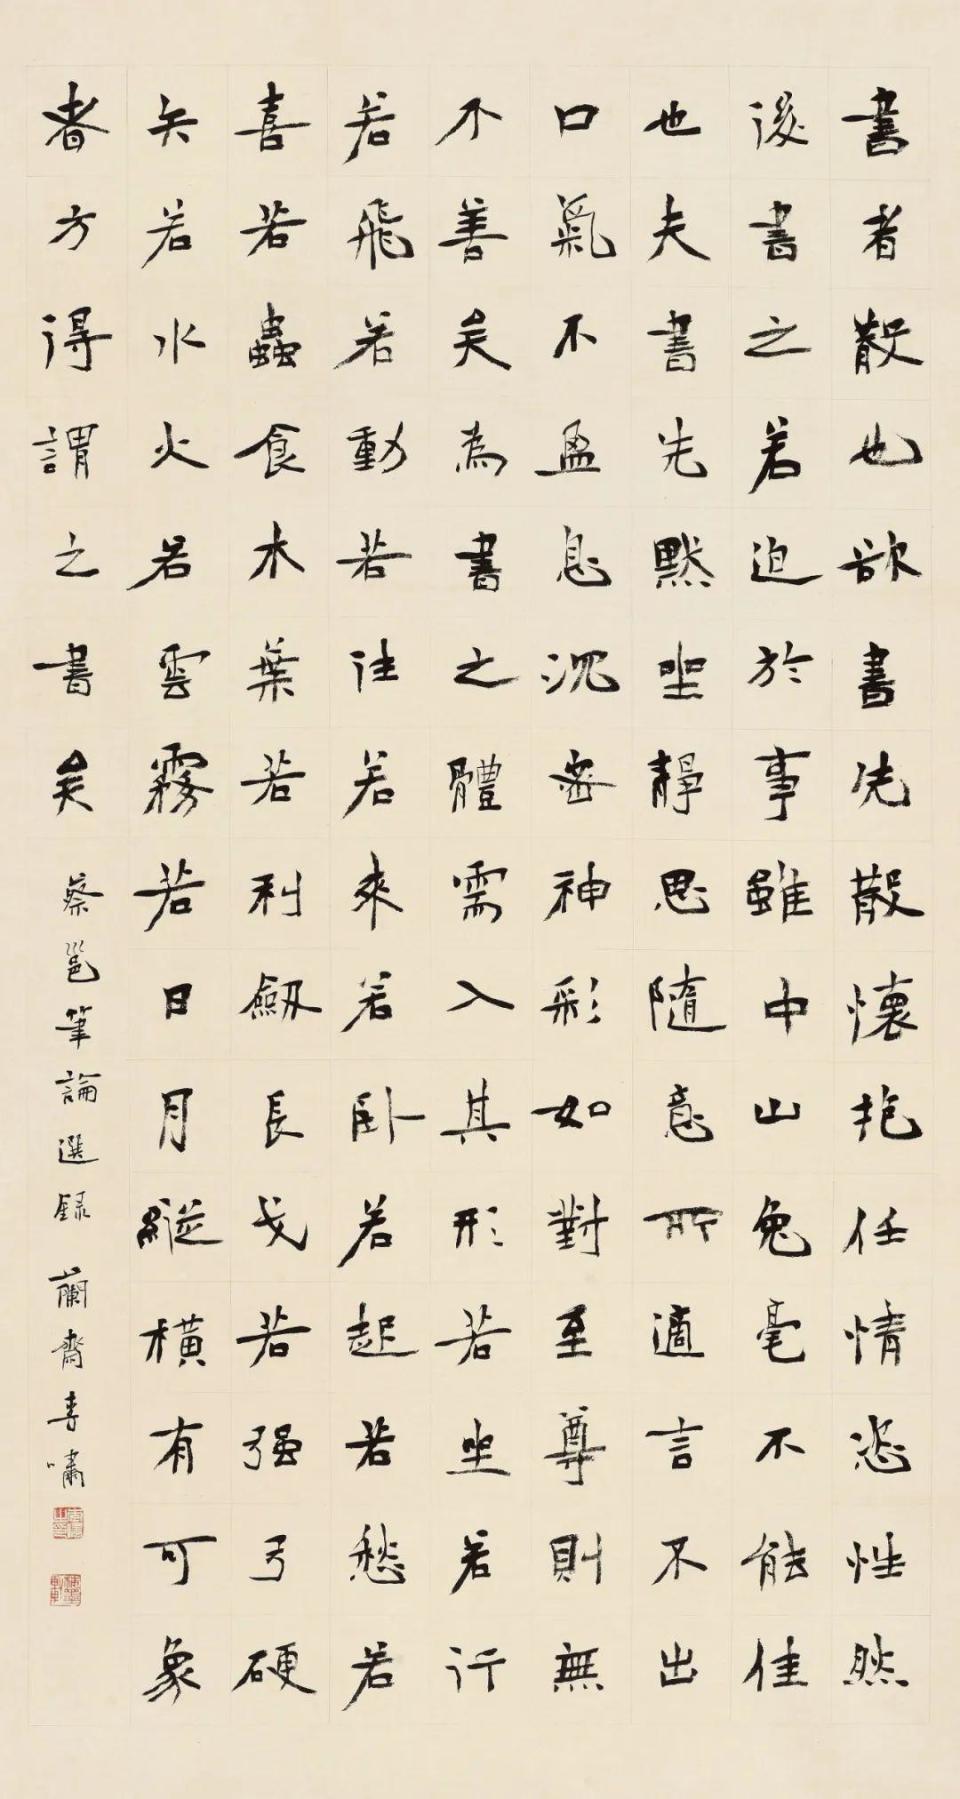 書者散也欲書先散懷抱任情恣性然
後書之若迫於事雖中山兔毫不能佳
也夫書先默坐靜思隨意所適言不出
口氣不盈息沉密神彩如對至尊則無
不善矣為書之體需入其形若坐若行
若飛若動若往若來若臥若起若愁若
喜若蟲食木葉若利劒長戈若强弓硬
矢若水火若雲霧若日月縱橫有可象
者方得謂之書矣 蔡邕筆論選録 蘭齋李嘯